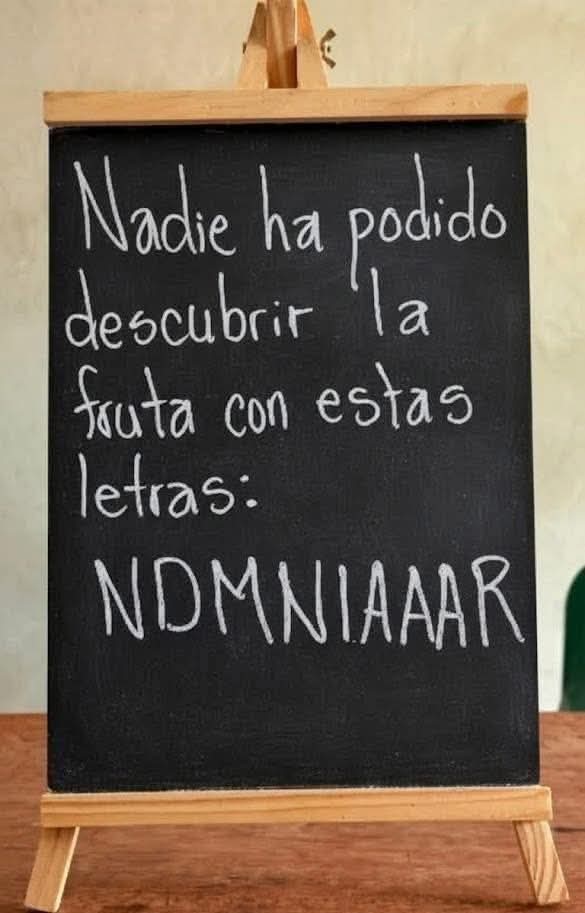 Nadie ha podido
descubrir la
fruta con estas
letras:
NDMNIAAAR